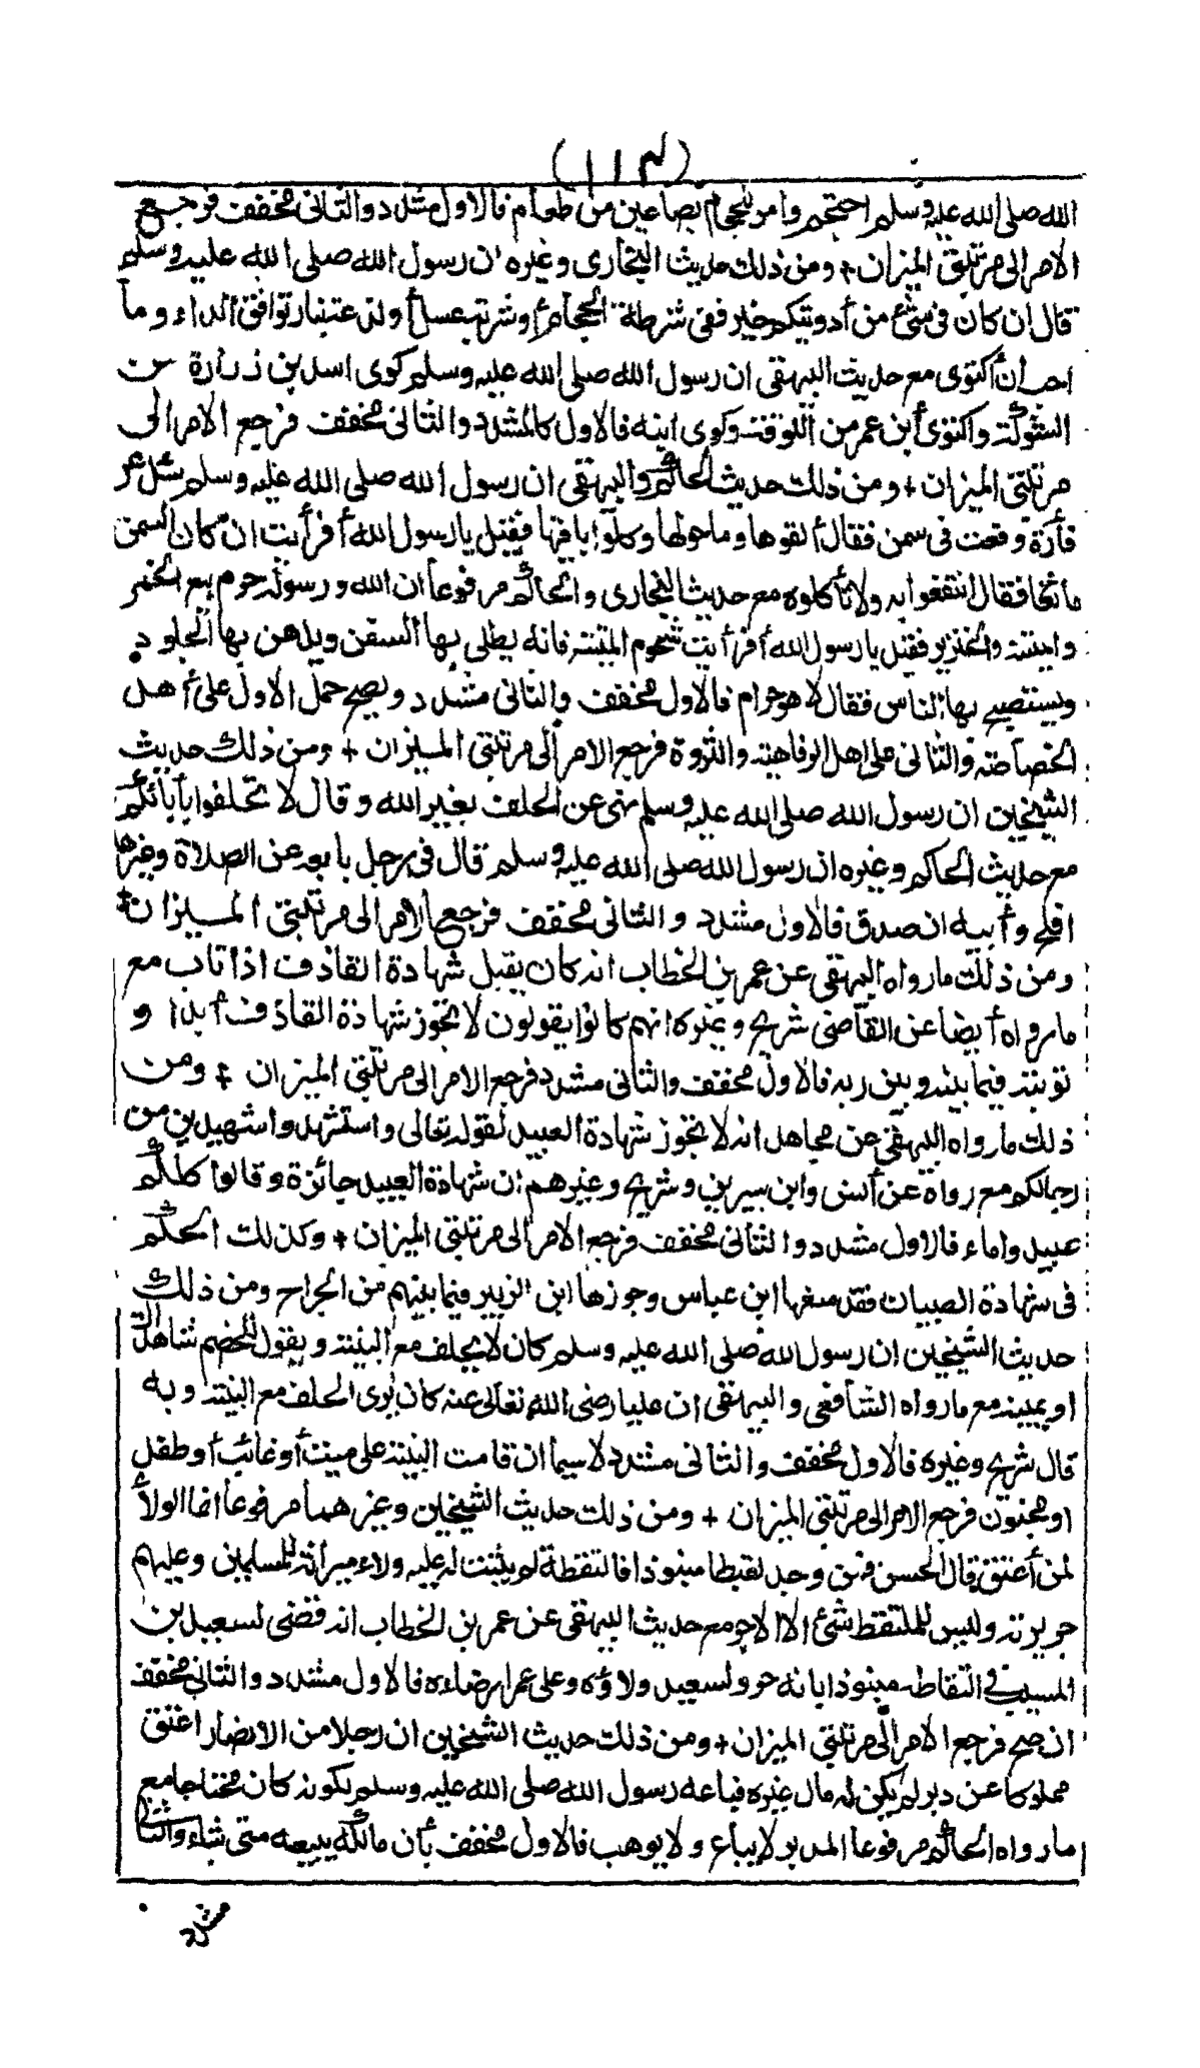 (١١٤)
الله صلى الله عليه وسلم احتجم وأمر للحجام بصاعين من طعام فالاول مشدد والثانى مخفف فرجع
الامر الى مرتبتى الميزان + ومن ذلك حديث البخارى وغيره ان رسول الله صلى الله عليه وسلم
قال ان كان فى شئ من أدويتكم خير ففى شرطة الحجام أو شربة عسل أو لذعة بنار توافق الداء وما
احب أن أكتوى مع حديث البيهقى ان رسول الله صلى الله عليه وسلم كوى اسعد بن زرارة من
الشوكة واكتوى أبن عمر من اللوقة وكوى ابنه فالاول كالمشدد والثانى مخفف فرجع الامر الى
مرتبتى الميزان + ومن ذلك حديث الحاكم والبيهقى ان رسول الله صلى الله عليه وسلم سئل عن
فأرة وقعت فى سمن فقال ألقوها وما حولها وكلوا باقيها فقيل يا رسول الله أفرأيت ان كان السمن
مائعا فقال انتفعوا به ولا تأكلوه مع حديث البخارى والحاكم مرفوعا ان الله ورسوله حرم بيع الخمر
والميتة والخنزير فقيل يا رسول الله أفرأيت شحوم الميتة فانه يطلى بها السفن ويدهن بها الجلود
ويستصبح بها الناس فقال لا هو حرام فالاول مخفف والثانى مشدد ويصح حمل الاول على أهل
الخصاصة والثانى على اهل الرفاهية والثروة فرجع الامر الى مرتبتى الميزان + ومن ذلك حديث
الشيخين ان رسول الله صلى الله عليه وسلم نهى عن الحلف بغير الله وقال لا تحلفوا بآبائكم
مع حديث الحاكم وغيره ان رسول الله صلى الله عليه وسلم قال فى رجل بايعه عن الصلاة وغيرها
افلح وأبيه ان صدق فالاول مشدد والثانى مخفف فرجع الامر الى مرتبتى الميزان +
ومن ذلك ما رواه البيهقى عن عمر بن الخطاب انه كان يقبل شهادة القاذف اذا تاب مع
ما رواه أيضا عن القاضى شريح وغيره انهم كانوا يقولون لا تجوز شهادة القاذف أبدا و
توبته فيما بينه وبين ربه فالاول مخفف والثانى مشدد فرجع الامر الى مرتبتى الميزان + ومن
ذلك ما رواه البيهقى عن مجاهد انه لا تجوز شهادة العبيد لقوله تعالى واستشهدوا شهيدين من
رجالكم مع رواه عن أنس وابن سيرين وشريح وغيرهم ان شهادة العبيد جائزة وقالوا كلكم
عبيد واماء فالاول مشدد والثانى مخفف فرجع الامر الى مرتبتى الميزان + وكذلك الحكم
فى شهادة الصبيان فقد منعها ابن عباس وجوزها ابن الزبير فيما بينهم من الجراح ومن ذلك
حديث الشيخين ان رسول الله صلى الله عليه وسلم كان لا يحلف مع البينة ويقول للخصم شاهداك
او يمينه مع ما رواه الشافعى والبيهقى ان عليا رضى الله تعالى عنه كان يرى الحلف مع البينة وبه
قال شريح وغيره فالاول مخفف والثانى مشدد لا سيما ان قامت البينة على ميت أو غائب أو طفل
او مجنون فرجع الامر الى مرتبتى الميزان + ومن ذلك حديث الشيخين وغيرهما مرفوعا انما الولاء
لمن أعتق قال الحسن فمن وجد لقيطا منبوذا فالتقطه لم يثبت له عليه ولاء ميراثه للمسلمين وعليهم
جريرته وليس للملتقط شئ الا الاجر مع حديث البيهقى عن عمر بن الخطاب انه قضى لسعيد بن
المسيب فى التقاطه منبوذا بانه حر ولسعيد ولاؤه وعلى عمر ارضاعه فالاول مشدد والثانى مخفف
ان صح فرجع الامر الى مرتبتى الميزان + ومن ذلك حديث الشيخين ان رجلا من الانصار اعتق
مملوكا عن دبر لم يكن له مال غيره فباعه رسول الله صلى الله عليه وسلم لكونه كان محتاجا مع
ما رواه الحاكم مرفوعا المدبر لا يباع ولا يوهب فالاول مخفف بأن مالكه يبيعه متى شاء والثانى
مشدد